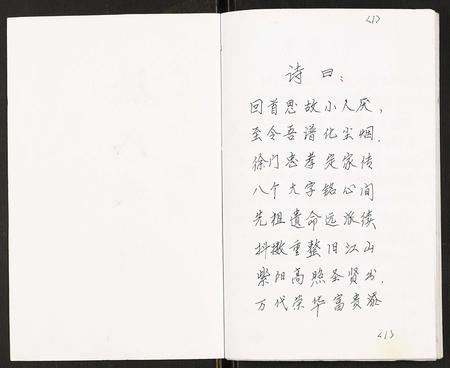 <1>
诗曰：
回首思故小人厌，
至令吾谱化尘烟.
徐门忠孝定家传
八个大字铭心间
先祖遗命远派续
抖擞重整旧江山
紫阳高照圣贤书.
万代荣华富贵添
<1>